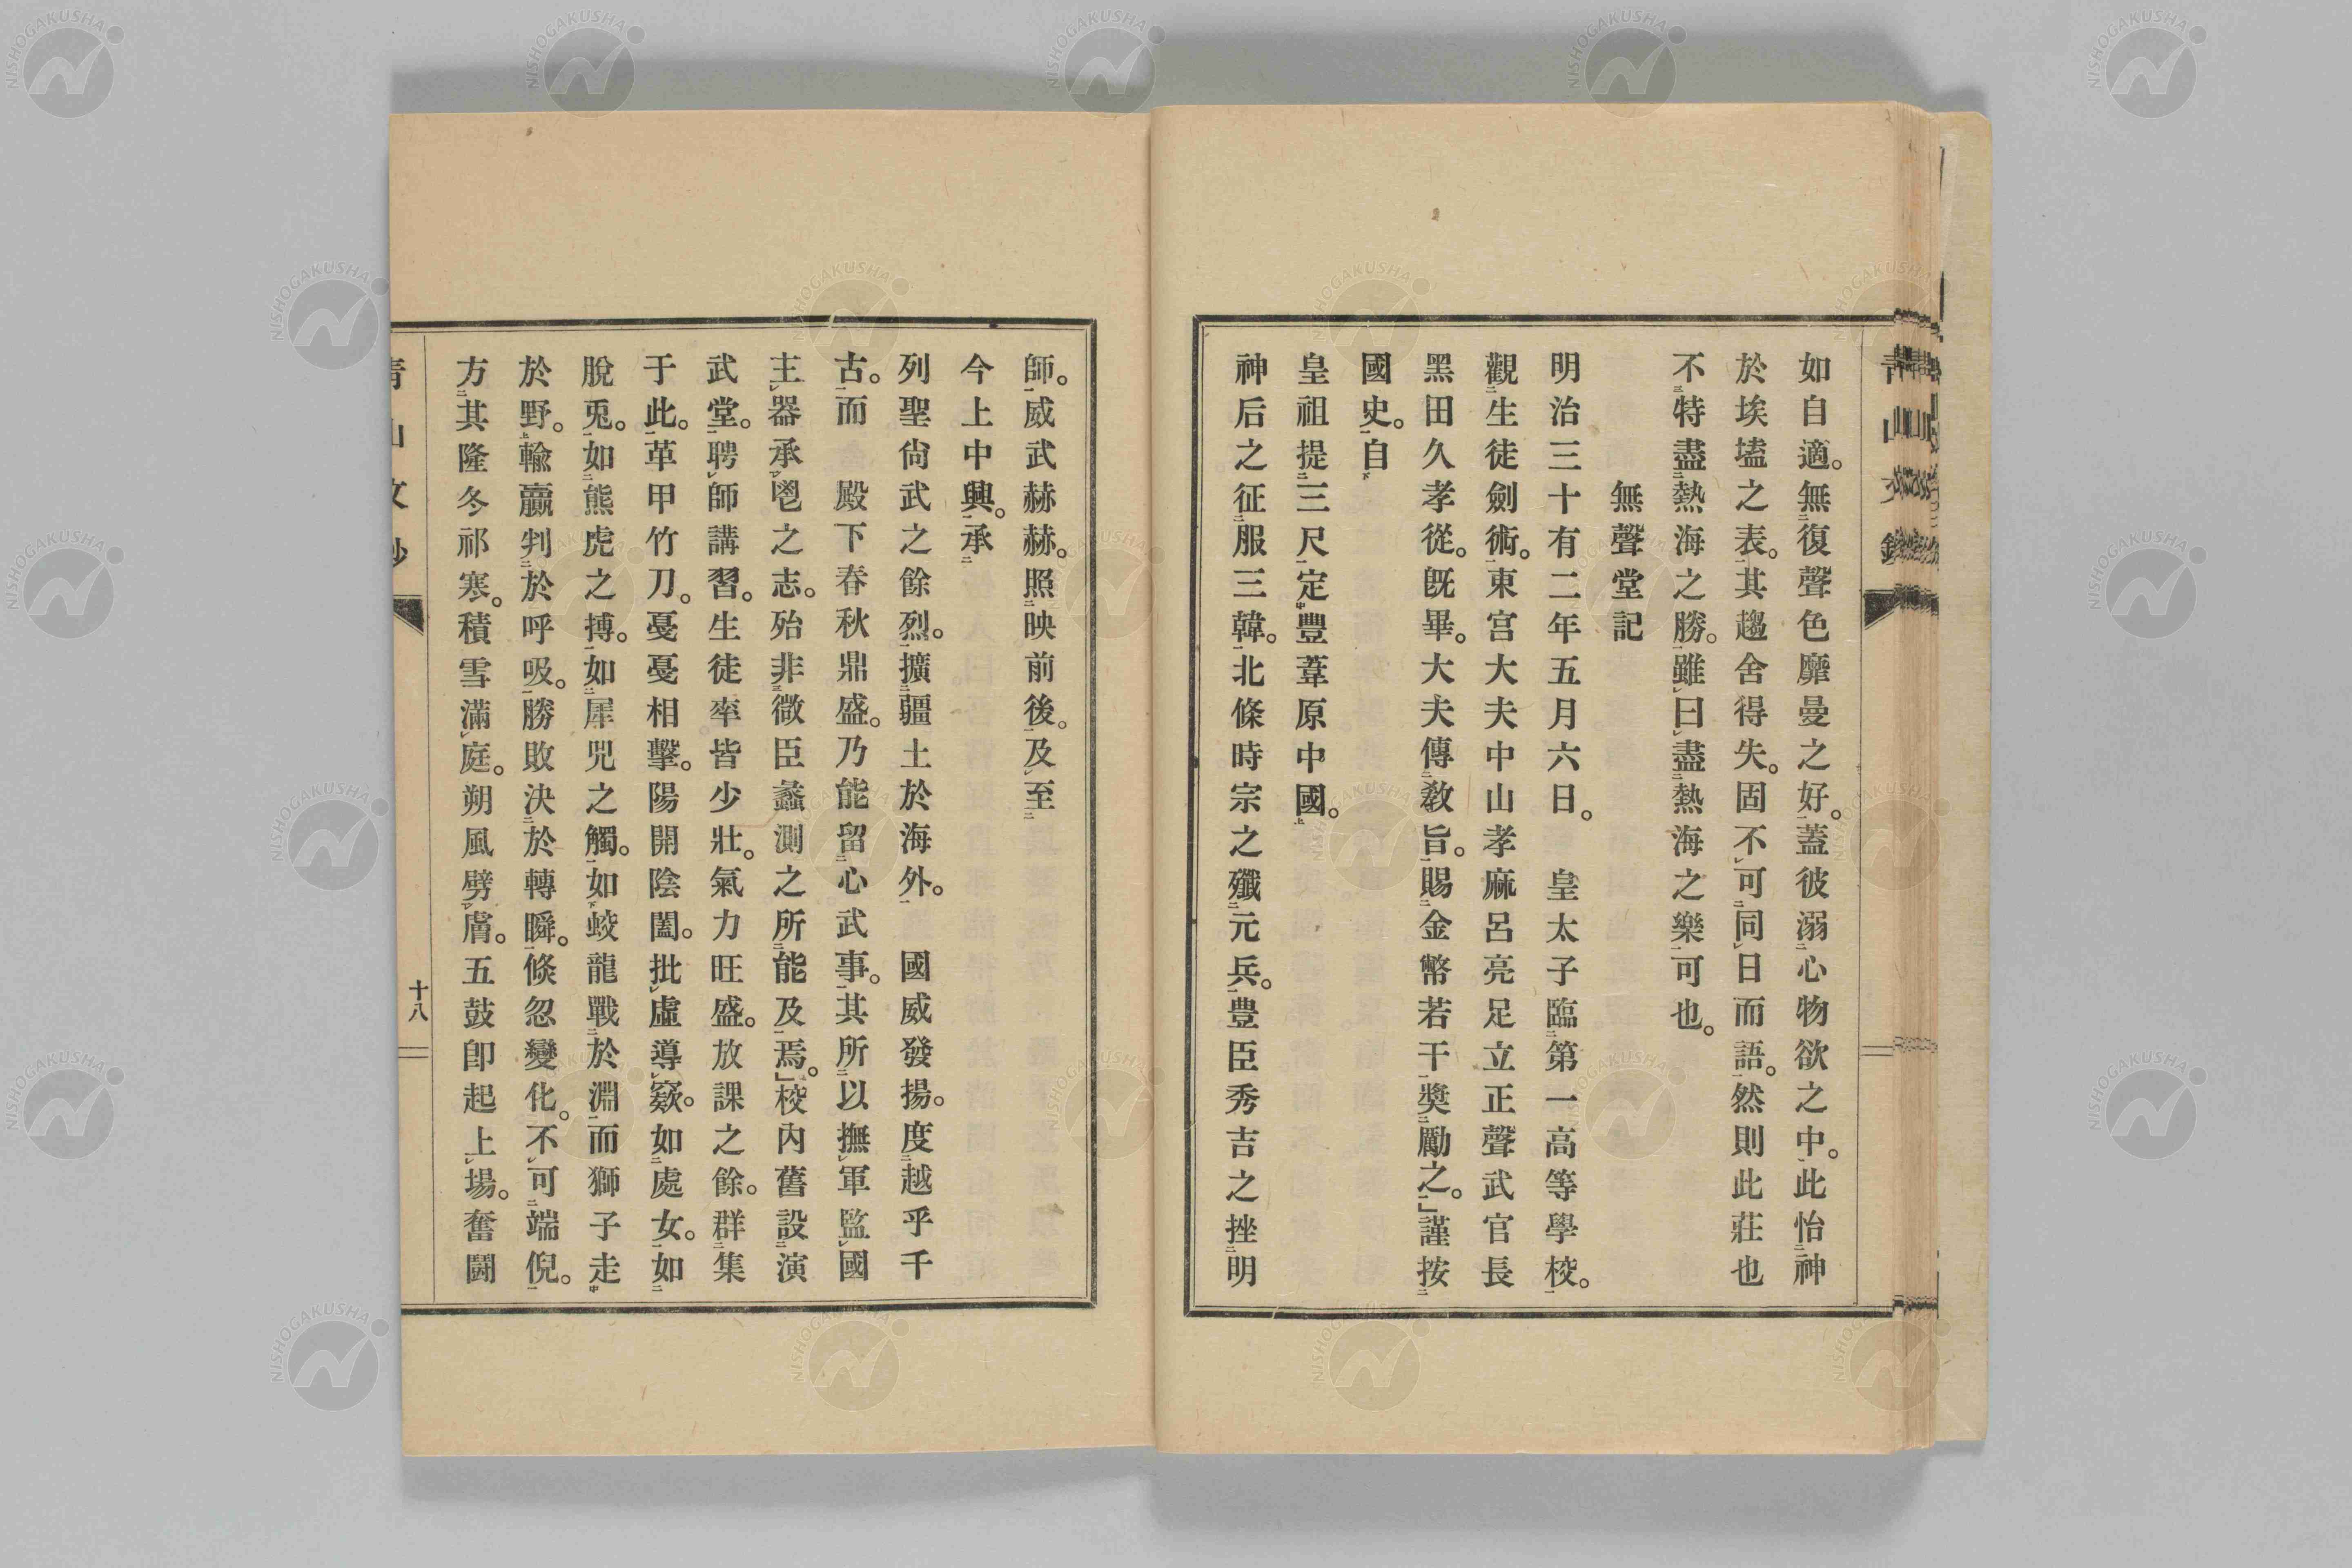 如自適。無復聲色靡曼之好。蓋彼溺心物欲之中。此怡神
於埃壒之表。其趨舍得失。固不可同日而語。然則此莊也
不特盡熱海之勝。雖曰盡熱海之樂可也。
無聲堂記
明治三十有二年五月六日。 皇太子臨第一高等學校。
觀生徒劍術。東宮大夫中山孝麻呂亮足立正聲武官長
黑田久孝從。既畢。大夫傳教旨。賜金幣若干奬勵之。」謹按
國史。自
皇祖提三尺定豐葦原中國。
神后之征服三韓。北條時宗之殲元兵。豐臣秀吉之挫明
師。威武赫赫。照映前後。及至
今上中興。承
列聖尙武之餘烈。擴疆土於海外。 國威發揚。度越乎千
古。而 殿下春秋鼎盛。乃能留心武事。其所以撫軍監國
主器承鬯之志。殆非微臣蠡測之所能及焉。」校內舊設演
武堂。聘師講習。生徒率皆少壯。氣力旺盛。放課之餘。群集
于此。革甲竹刀。戞戞相擊。陽開陰闔。批虛導窾。如處女。如
脫兎。如熊虎之搏。如犀兕之觸。如蛟龍戰於淵而獅子走
於野。輸贏判於呼吸。勝敗決於轉瞬。倐忽變化。不可端倪。
方其隆冬祁寒。積雪滿庭。朔風劈膚。五鼓卽起上場。奮鬪
十八
NISHOGAKUSHA